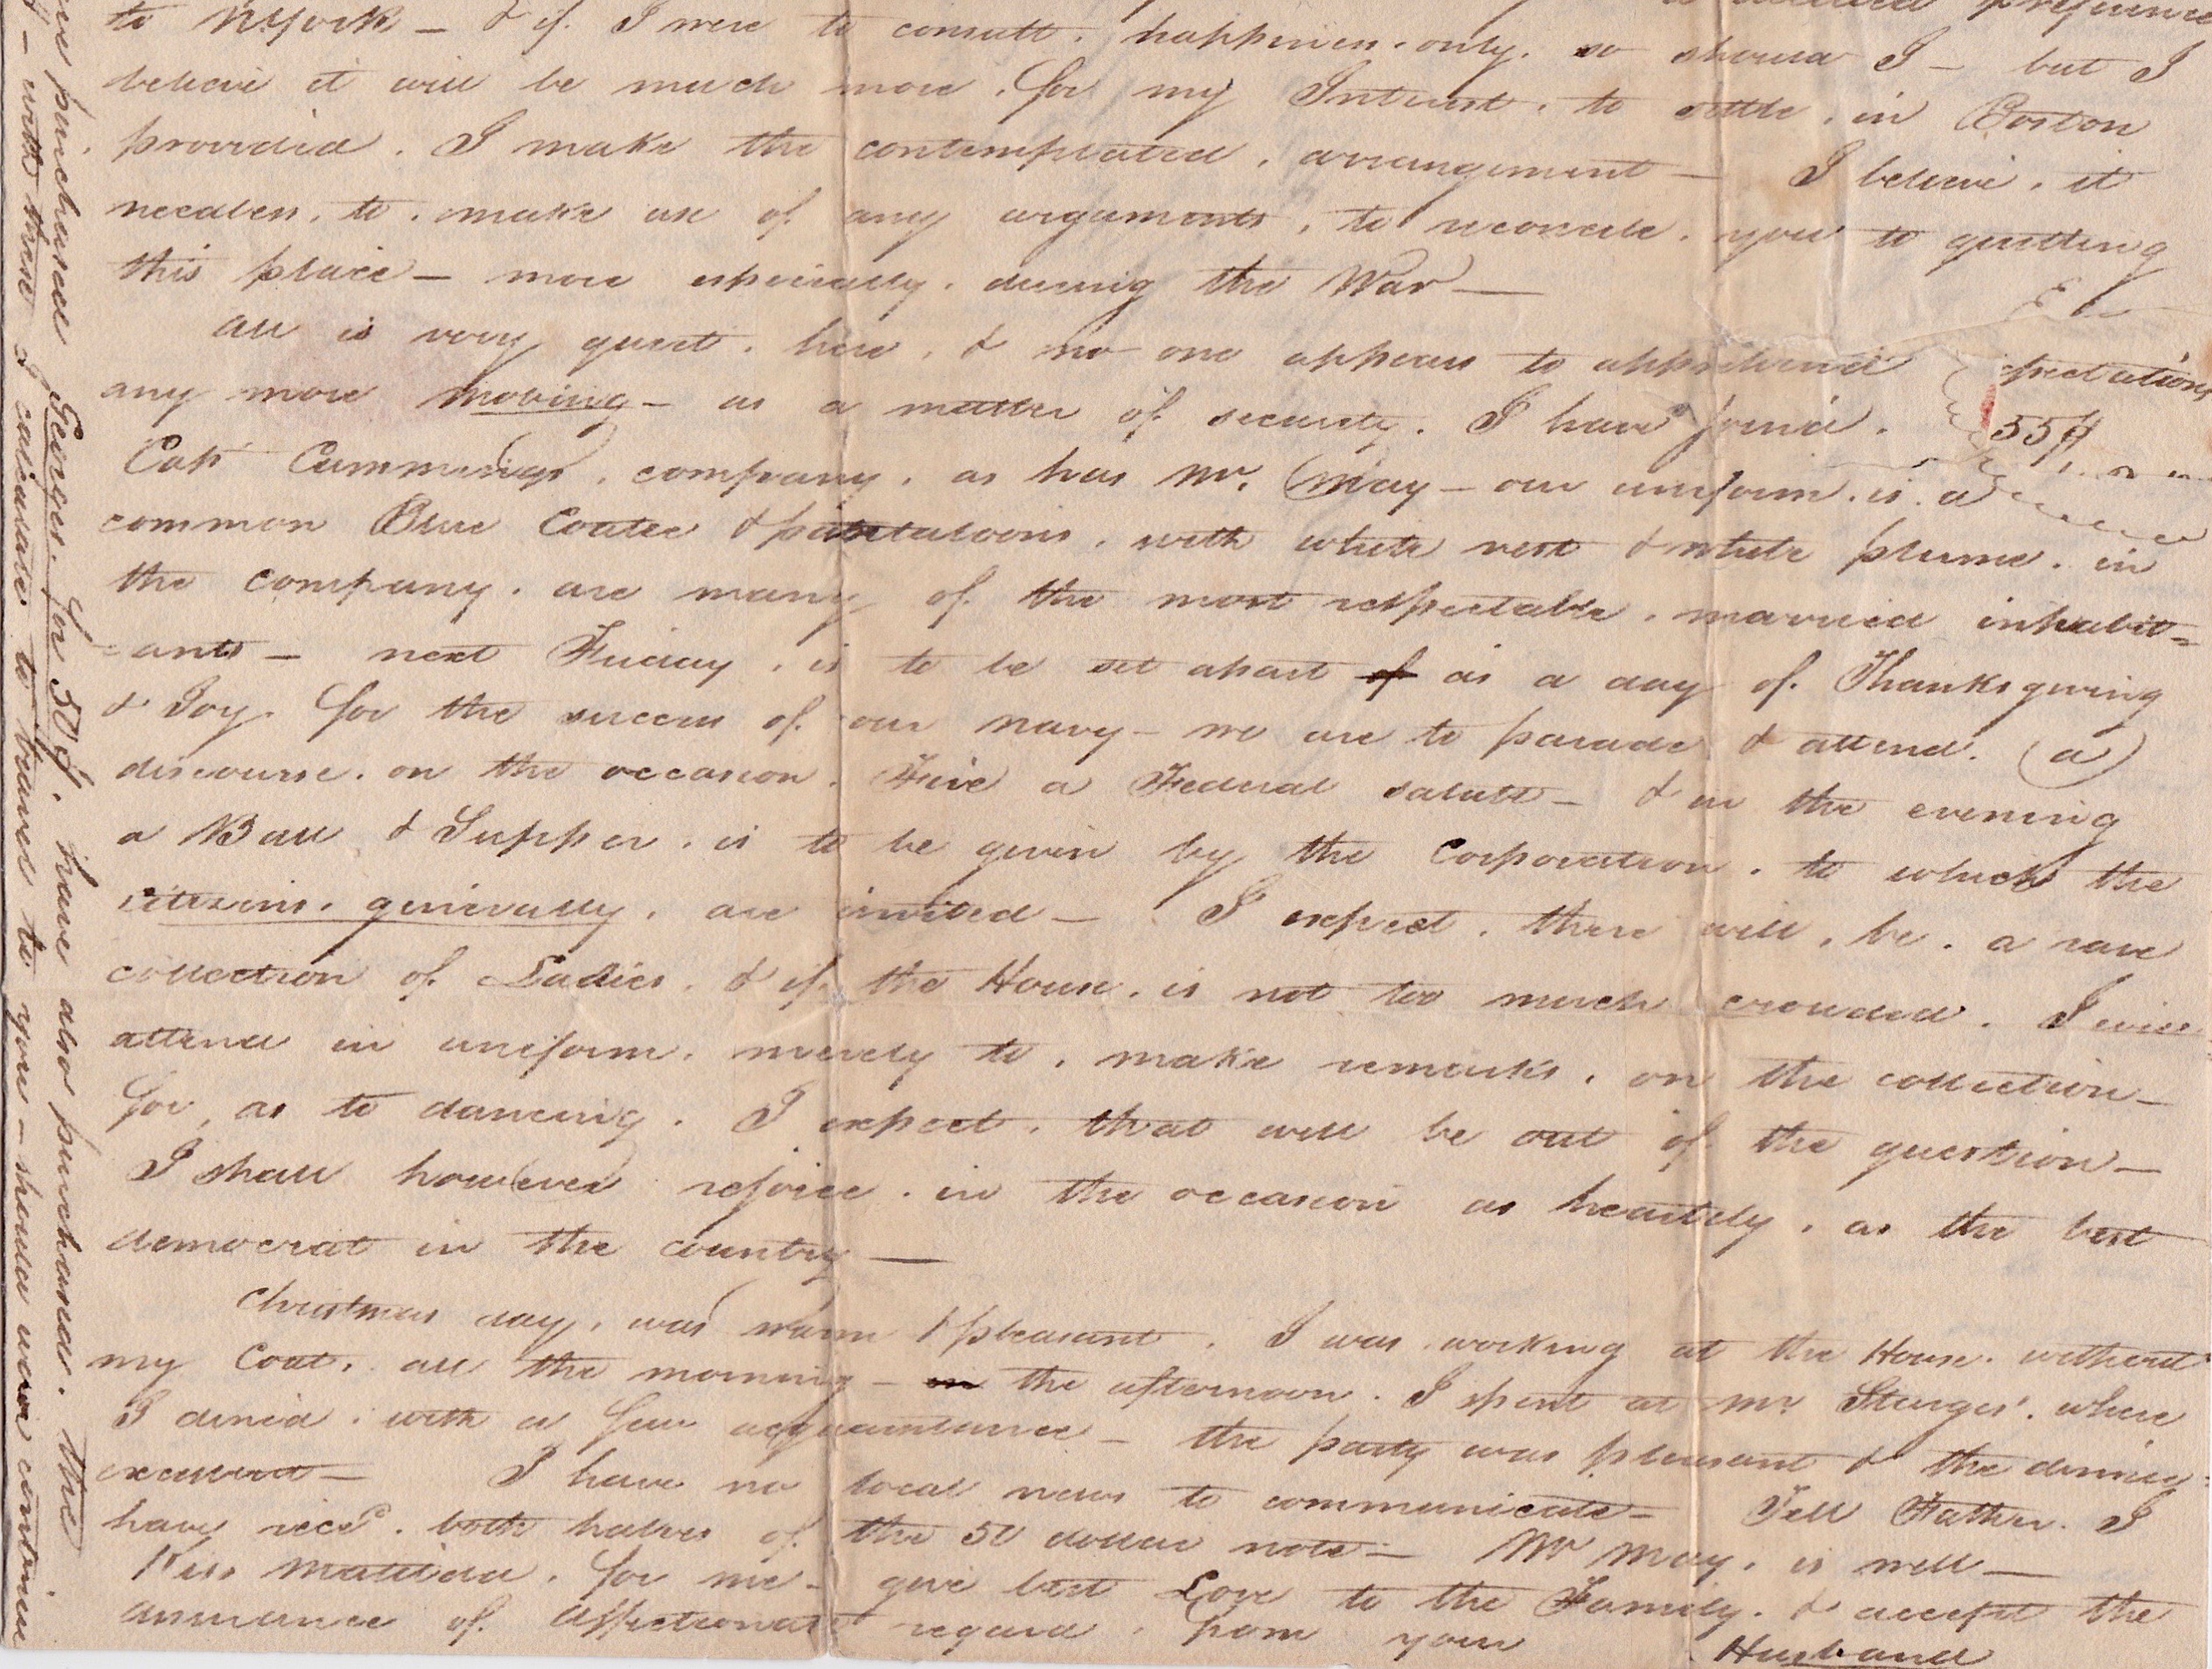 to NYork – & if I were to consult. happiness. only. so should I – but I
believe it will be much more. for my Interest. to settle. in Boston
provided. I make the contemplated. arrangement – I believe. it
needless. to. make use of any arguments. to reconcile. you to quitting
this place – more especially. during the War –
All is very quiet. here. & no one appears to apprehend
any more moving – as a matter of security. I have join'd.
Capt Cummings. company. as has Mr. May – our uniform. is. a
common Blue Coatee & pantaloons. with white vest & white plume. in
the company. are many of the most respectable. married inhabit=
=ants – next Friday. is to be set apart of as a day of. Thanksgiving
& Joy. for the success of. our navy – we are to parade & attend. a
discourse. on the occasion. Fire a Federal salute – & in the evening
a Ball & Supper. is to be given by the Corporation. to which the
citizens. generally. are invited – I expect. there will. be. a rare
collection of Ladies. & if the House. is not too much crowded. I will
attend in uniform. merely to. make remarks. on the collection –
for, as to dancing. I expect. that will be out of the question –
I shall however rejoice. in the occasion as heartily. as the best
democrat in the country –
Christmas day. was warm & pleasant. I was working at the House. without
my Coat. all the morning – in the afternoon. I spent at Mr. Sturges'. where
I dined. with a few acquaintance – the party was pleasant & the dinner
excellent – I have no local news to communicate – Tell Father. I
have recd. both halves of the 50 dollar note – Mr May. is well –
Kiss Matilda. for me – give best Love to the Family. & accept the
assurance of affectionate regard. from your Husband
pectations
55$
purchased Georges. for 50$. have also purchased. the
– with these I calculate to travel to you – should wear continue